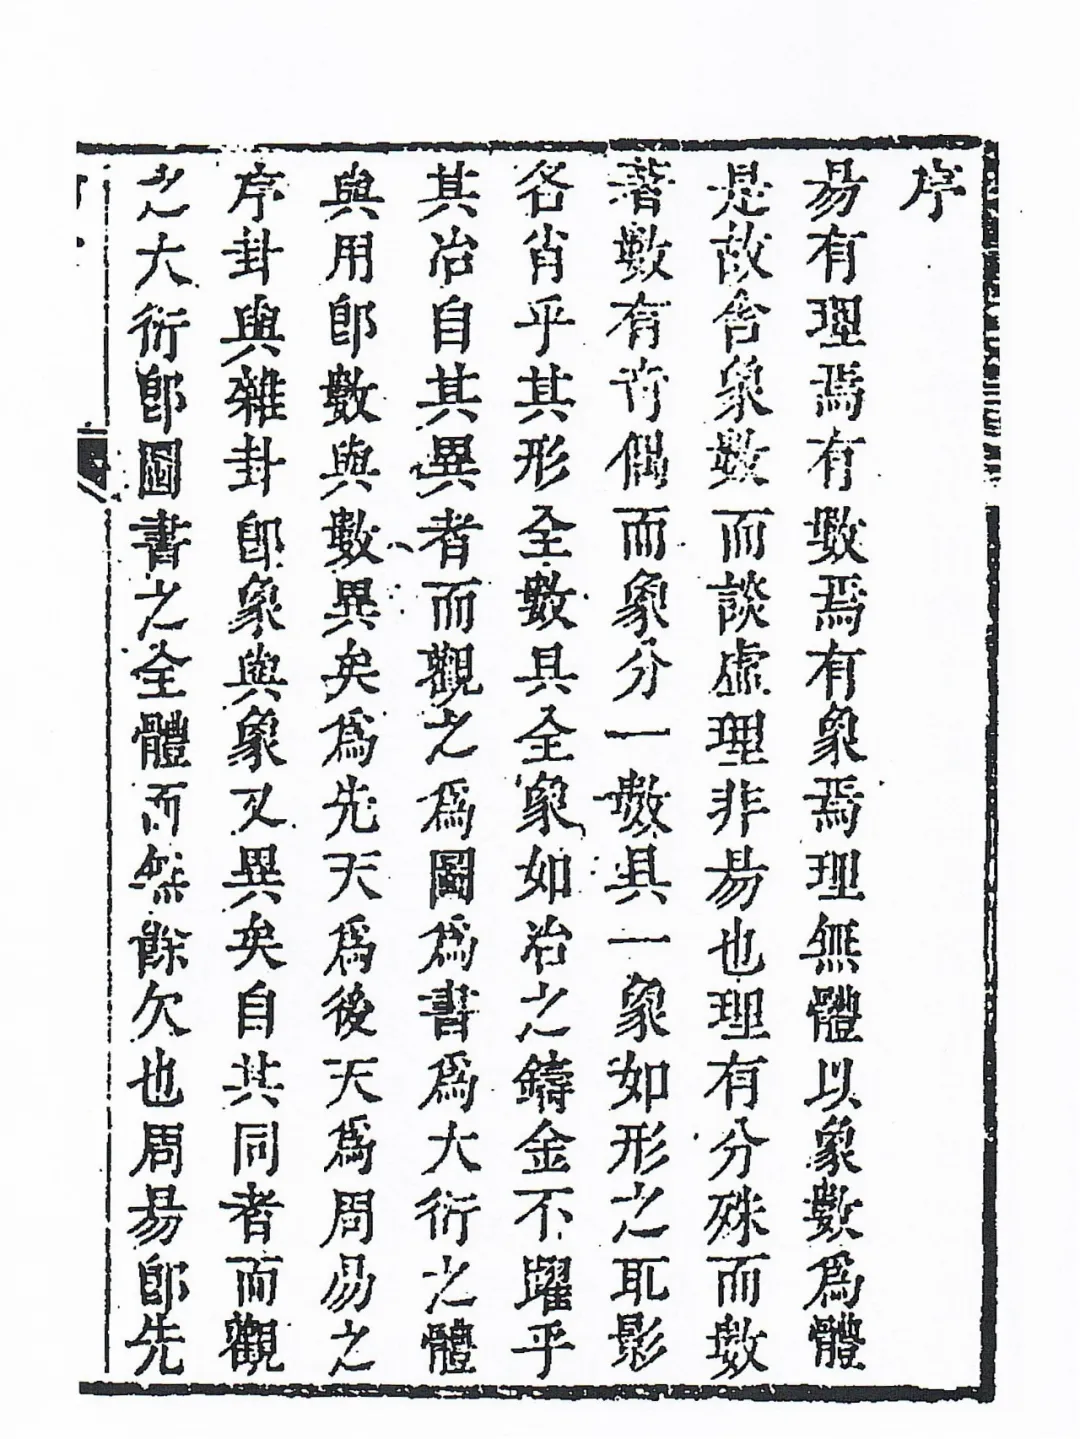 序
易有理焉有數焉有象焉理無體以象數爲體
是故舍象數而談虛理非易也理有分殊而數
著數有奇偶而象分一數具一象如形之取影
各肖乎其形全數具全象如冶之鑄金不躍乎
其冶自其異者而觀之爲圖爲書爲大衍之體
與用即數與數異矣爲先天爲後天爲周易之
序卦與雜卦即象與象又異矣自其同者而觀
之大衍即圖書之全體而無餘欠也周易即先